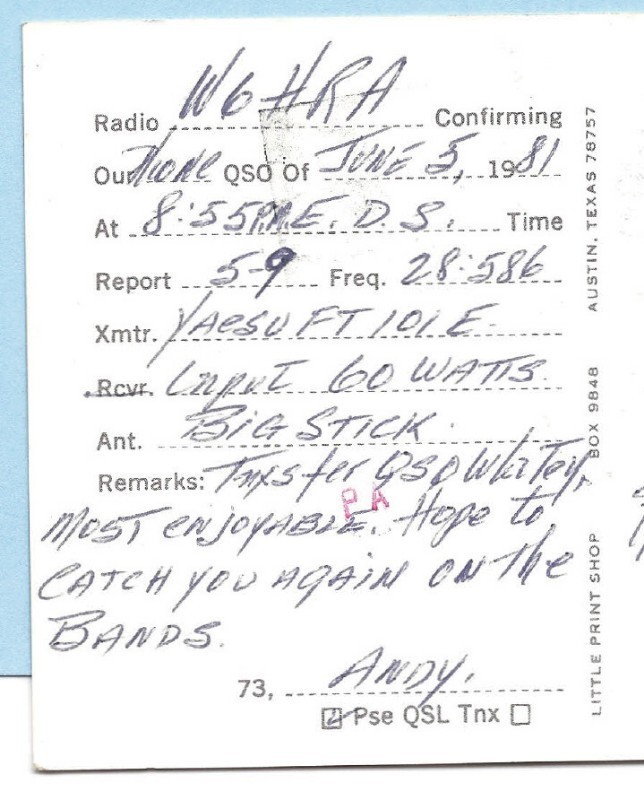 Radio W6HRA Confirming
Our Phone QSO Of JUNE 5, 1981
At 8:55 P.M. E. D. S. Time
Report 5-9 Freq. 28:586
Xmtr. YAESU FT 101 E.
Rcvr. Input 60 WATTS.
Ant. BIG STICK.
Remarks: Tnxs fer QSO Whitey,
MOST ENJOYABLE. Hope to
CATCH YOU AGAIN ON the
BANDS.
PA
73, ANDY.
Pse QSL Tnx
LITTLE PRINT SHOP BOX 9848 AUSTIN, TEXAS 78757